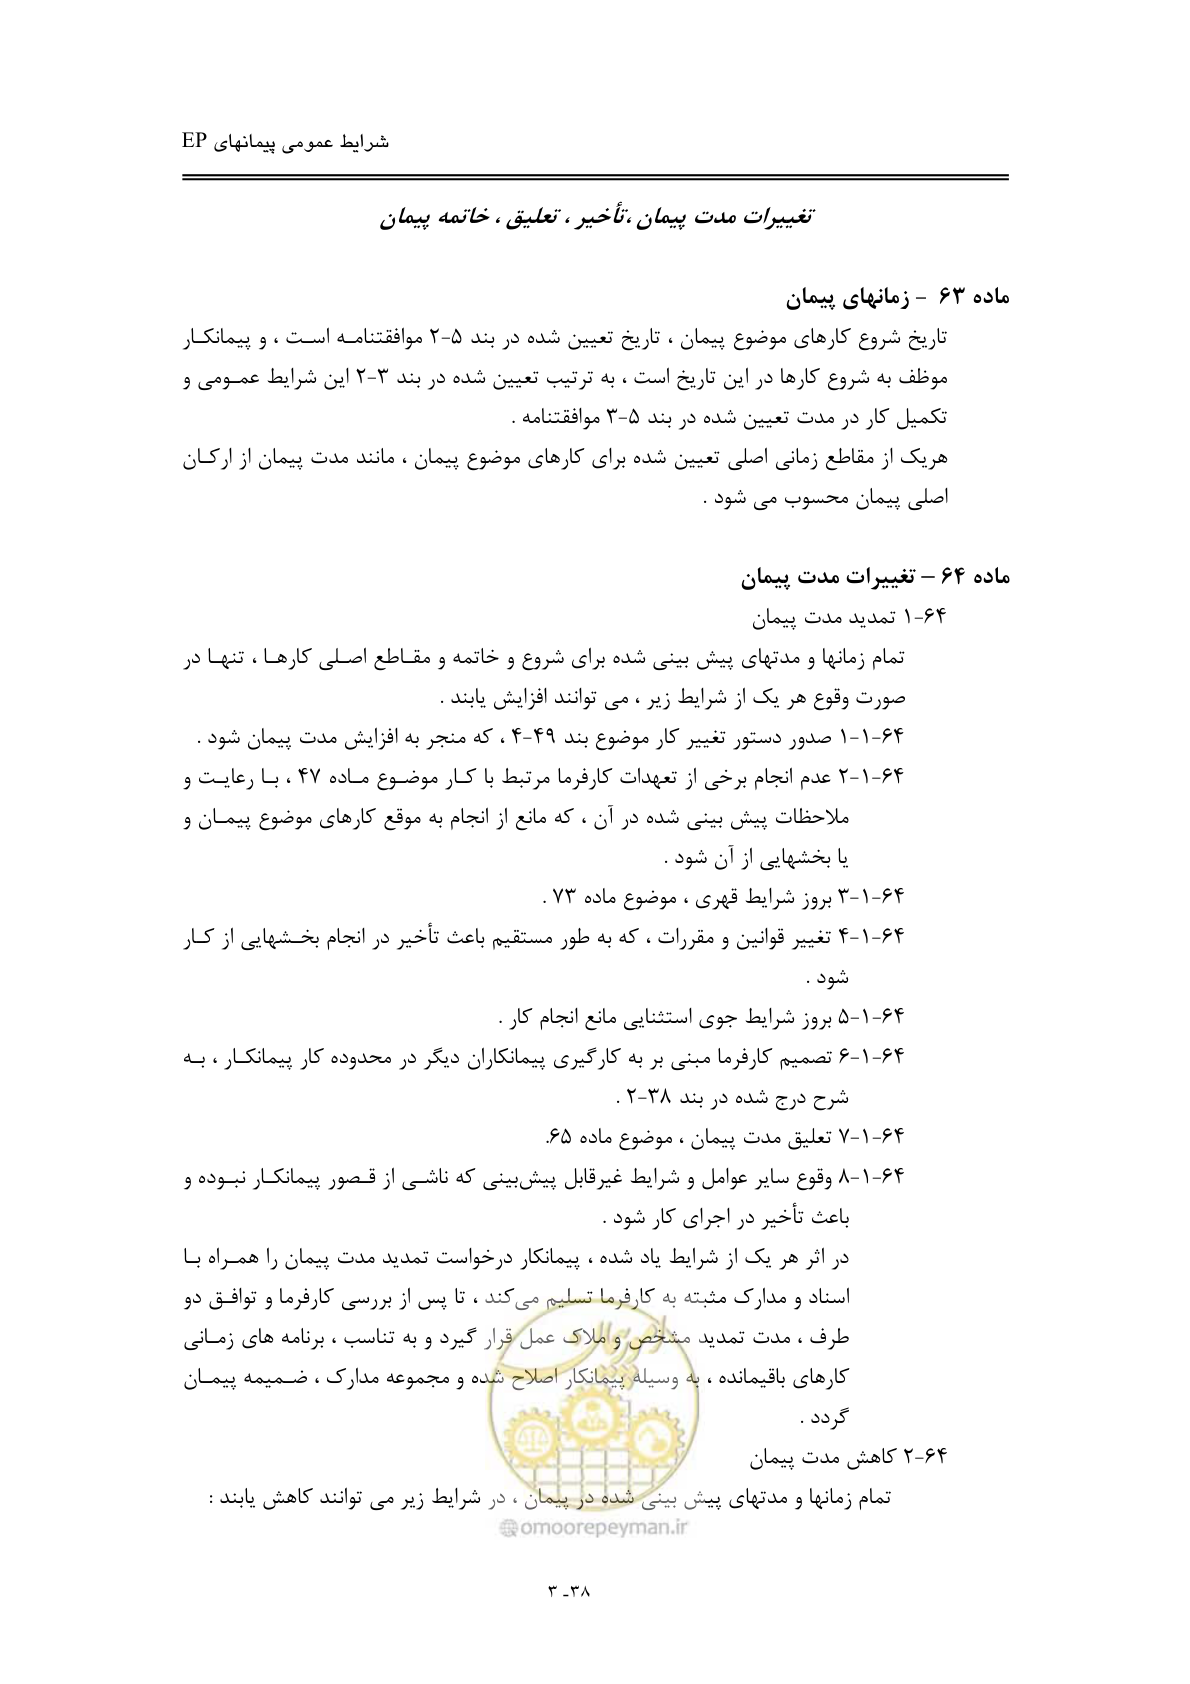 شرایط عمومی پیمانهای EP
تغییرات مدت پیمان ،تأخیر ، تعلیق ، خاتمه پیمان
ماده ۶۳ - زمانهای پیمان
تاریخ شروع کارهای موضوع پیمان ، تاریخ تعیین شده در بند ۵-۲ موافقتنامـه اسـت ، و پیمانکـار
موظف به شروع کارها در این تاریخ است ، به ترتیب تعیین شده در بند ۳-۲ این شرایط عمـومی و
تکمیل کار در مدت تعیین شده در بند ۵-۳ موافقتنامه .
هریک از مقاطع زمانی اصلی تعیین شده برای کارهای موضوع پیمان ، مانند مدت پیمان از ارکـان
اصلی پیمان محسوب می شود .
ماده ۶۴ – تغییرات مدت پیمان
۶۴-۱ تمدید مدت پیمان
تمام زمانها و مدتهای پیش بینی شده برای شروع و خاتمه و مقـاطع اصـلی کارهـا ، تنهـا در
صورت وقوع هر یک از شرایط زیر ، می توانند افزایش یابند .
۶۴-۱-۱ صدور دستور تغییر کار موضوع بند ۴۹-۴ ، که منجر به افزایش مدت پیمان شود .
۶۴-۱-۲ عدم انجام برخی از تعهدات کارفرما مرتبط با کـار موضـوع مـاده ۴۷ ، بـا رعایـت و
ملاحظات پیش بینی شده در آن ، که مانع از انجام به موقع کارهای موضوع پیمـان و
یا بخشهایی از آن شود .
۶۴-۱-۳ بروز شرایط قهری ، موضوع ماده ۷۳ .
۶۴-۱-۴ تغییر قوانین و مقررات ، که به طور مستقیم باعث تأخیر در انجام بخـشهایی از کـار
شود .
۶۴-۱-۵ بروز شرایط جوی استثنایی مانع انجام کار .
۶۴-۱-۶ تصمیم کارفرما مبنی بر به کارگیری پیمانکاران دیگر در محدوده کار پیمانکـار ، بـه
شرح درج شده در بند ۳۸-۲ .
۶۴-۱-۷ تعلیق مدت پیمان ، موضوع ماده ۶۵.
۶۴-۱-۸ وقوع سایر عوامل و شرایط غیرقابل پیش‌بینی که ناشـی از قـصور پیمانکـار نبـوده و
باعث تأخیر در اجرای کار شود .
در اثر هر یک از شرایط یاد شده ، پیمانکار درخواست تمدید مدت پیمان را همـراه بـا
اسناد و مدارک مثبته به کارفرما تسلیم می‌کند ، تا پس از بررسی کارفرما و توافـق دو
طرف ، مدت تمدید مشخص و ملاک عمل قرار گیرد و به تناسب ، برنامه های زمـانی
کارهای باقیمانده ، به وسیله پیمانکار اصلاح شده و مجموعه مدارک ، ضـمیمه پیمـان
گردد .
۶۴-۲ کاهش مدت پیمان
تمام زمانها و مدتهای پیش بینی شده در پیمان ، در شرایط زیر می توانند کاهش یابند :
@omoorepeyman.ir
۳۸ـ ۳